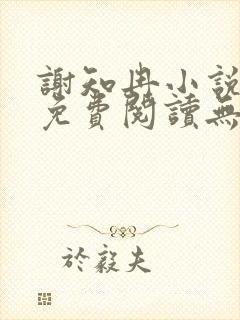 謝知冉小說
免費閱讀無
於毅夫